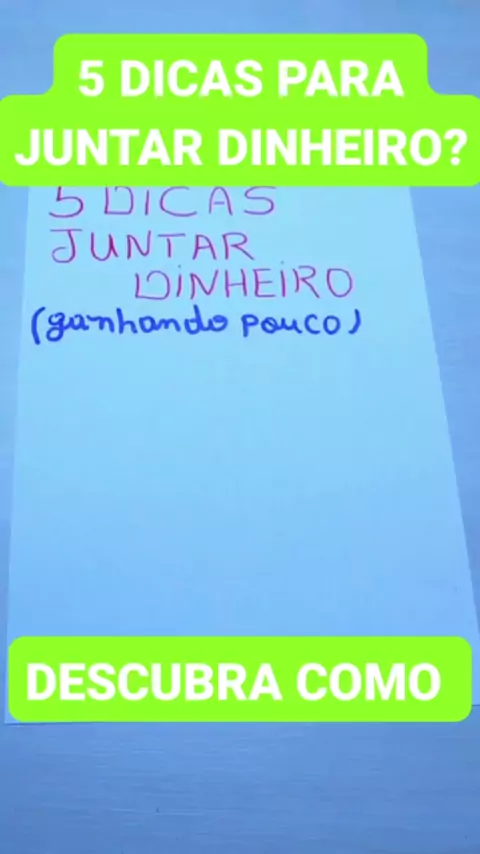 5 DICAS PARA
JUNTAR DINHEIRO?
5 DICAS
JUNTAR
DINHEIRO
(ganhando pouco)
DESCUBRA COMO